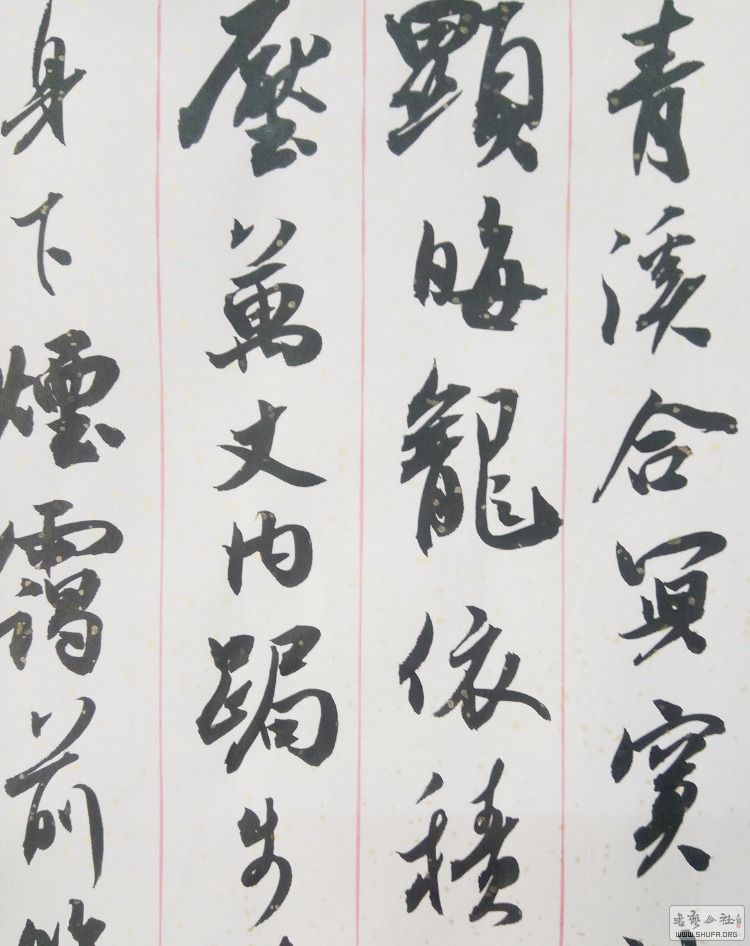 青溪合冥寞
顯晦龍依積
壓萬丈内跼步
身下煙靄前
书艺公社
WWW.SHUFA.ORG